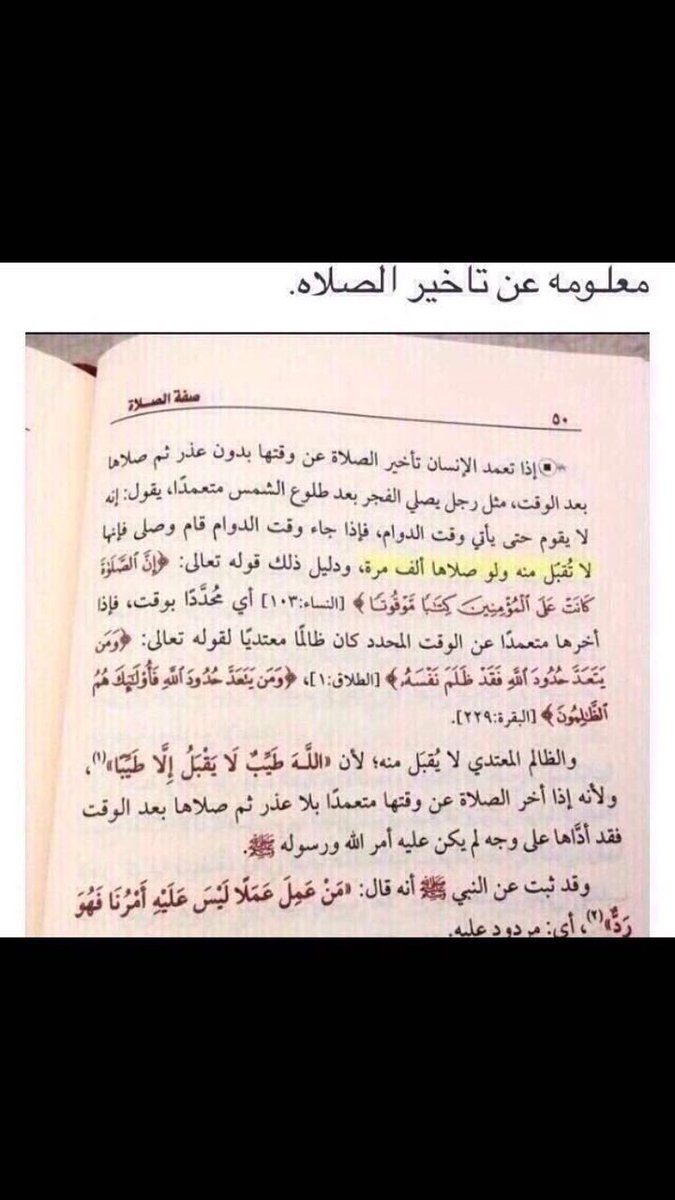 معلومه عن تاخير الصلاه.
٥٠ صفة الصلاة
إذا تعمد الإنسان تأخير الصلاة عن وقتها بدون عذر ثم صلاها
بعد الوقت، مثل رجل يصلي الفجر بعد طلوع الشمس متعمدًا، يقول: إنه
لا يقوم حتى يأتي وقت الدوام، فإذا جاء وقت الدوام قام وصلى فإنها
لا تُقبَل منه ولو صلاها ألف مرة، ودليل ذلك قوله تعالى: ﴿إِنَّ ٱلصَّلَوٰةَ
كَانَتْ عَلَى ٱلْمُؤْمِنِينَ كِتَٰبًا مَّوْقُوتًا﴾ [النساء:١٠٣] أي مُحدَّدًا بوقت، فإذا
أخرها متعمدًا عن الوقت المحدد كان ظالمًا معتديًا لقوله تعالى: ﴿وَمَن
يَتَعَدَّ حُدُودَ ٱللَّهِ فَقَدْ ظَلَمَ نَفْسَهُۥ﴾ [الطلاق:١]، ﴿وَمَن يَتَعَدَّ حُدُودَ ٱللَّهِ فَأُو۟لَٰٓئِكَ هُمُ
ٱلظَّٰلِمُونَ﴾ [البقرة:٢٢٩].
والظالم المعتدي لا يُقبَل منه؛ لأن «اللَّـهَ طَيِّبٌ لَا يَقْبَلُ إِلَّا طَيِّبًا»(١)،
ولأنه إذا أخر الصلاة عن وقتها متعمدًا بلا عذر ثم صلاها بعد الوقت
فقد أدَّاها على وجه لم يكن عليه أمر الله ورسوله ﷺ.
وقد ثبت عن النبي ﷺ أنه قال: «مَنْ عَمِلَ عَمَلًا لَيْسَ عَلَيْهِ أَمْرُنَا فَهُوَ
رَدٌّ»(٢)، أي: مردود عليه.